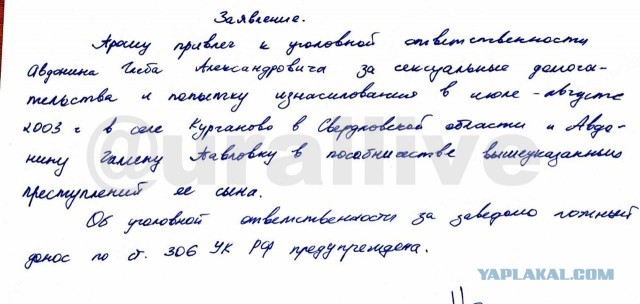 Заявление.
Прошу привлеч к уголовной ответственности
Авдонина Глеба Александровича за сексуальные домога-
тельства и попытку изнасилования в июле - августе
2003 г в селе Курганово в Свердловской области и Авдо-
нину Галину Павловну в пособничестве вышеуказанных
преступлений ее сына.
Об уголовной ответственности за заведомо ложный
донос по ст. 306 УК РФ предупреждена.
@urallive
YAPLAKAL.COM